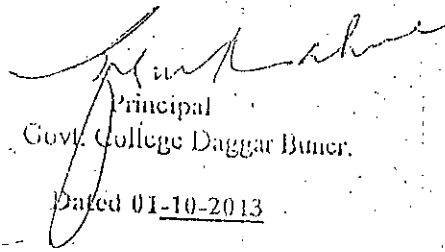 Principal
Govt. College Daggar Buner.
Dated 01-10-2013